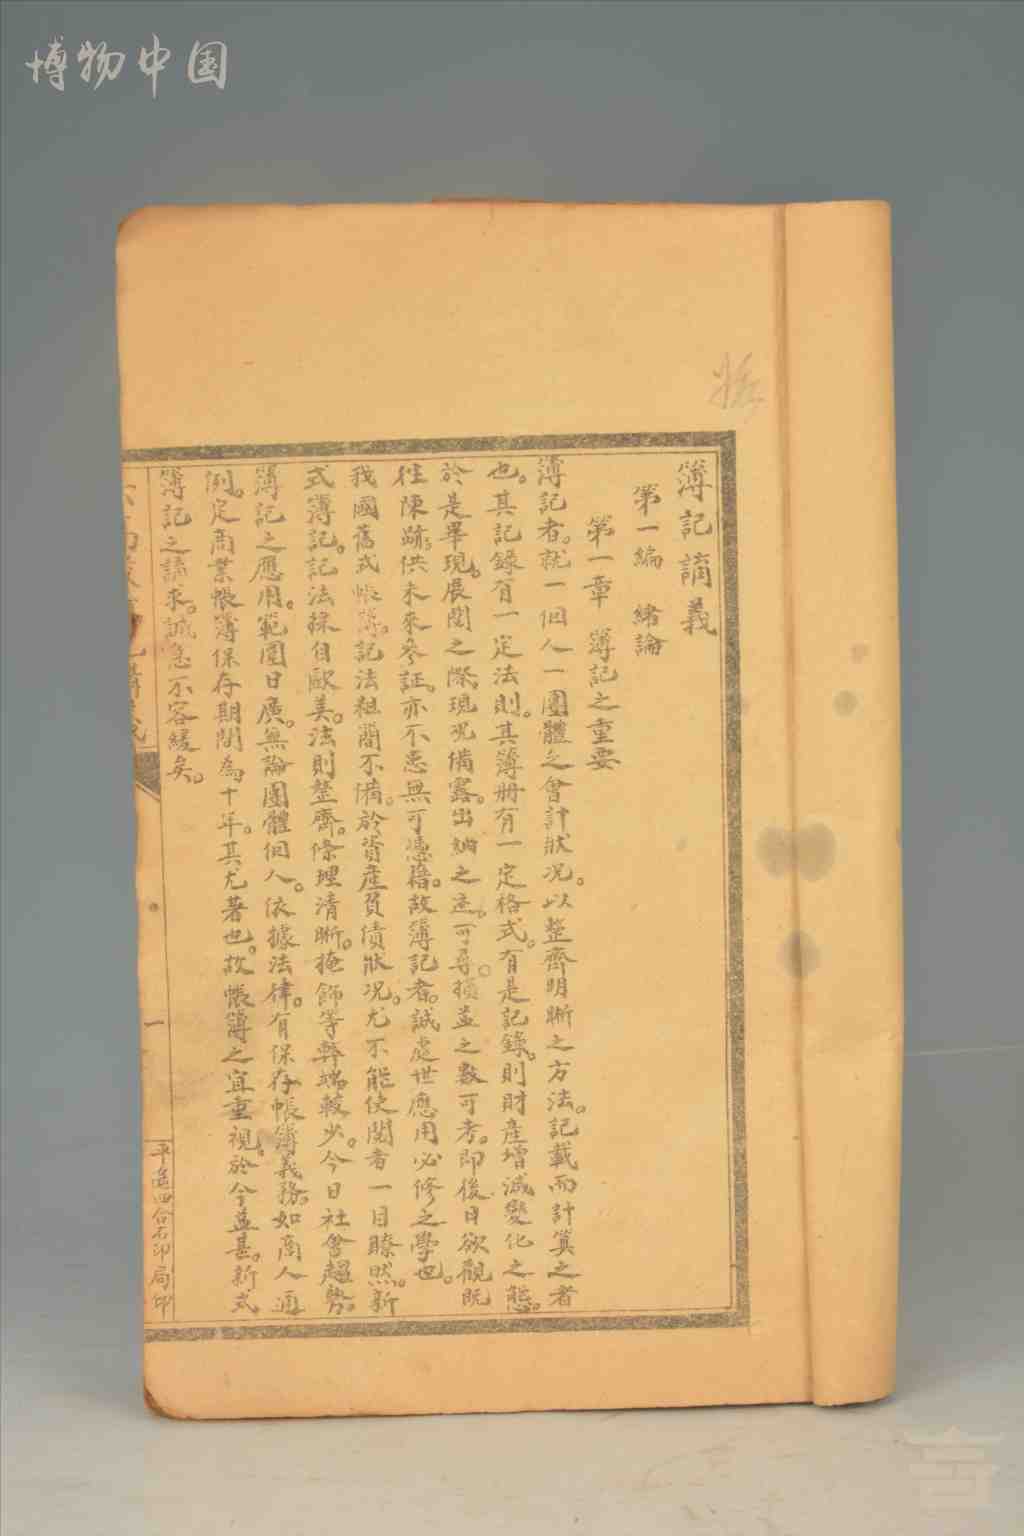 博物中国
簿記講義
第一編 緒論
第一章 簿記之重要
簿記者。就一個人一團體之會計狀况。以整齊明晰之方法。記載而計算之者
也。其記錄有一定法則。其簿册有一定格式。有是記錄。則財產增減變化之態。
於是畢現。展閱之際。現况備露。出納之迹。可尋。損益之數可考。即後日欲觀既
往陳跡。供未來參証。亦不患無可憑藉。故簿記者。誠處世應用必修之學也。
我國舊式帳簿。記法粗簡不備。於資產負債狀况。尤不能使閱者一目瞭然。新
式簿記。記法採自歐美。法則整齊。條理清晰。掩飾等弊端較少。今日社會趨勢。
簿記之應用。範圍日廣。無論團體個人。依據法律。有保存帳簿義務。如商人通
例。定商業帳簿保存期間為十年。其尤著也。故帳簿之宜重視。於今益甚。新式
簿記之講求。誠急不容緩矣。
一
平遙四合石印局印